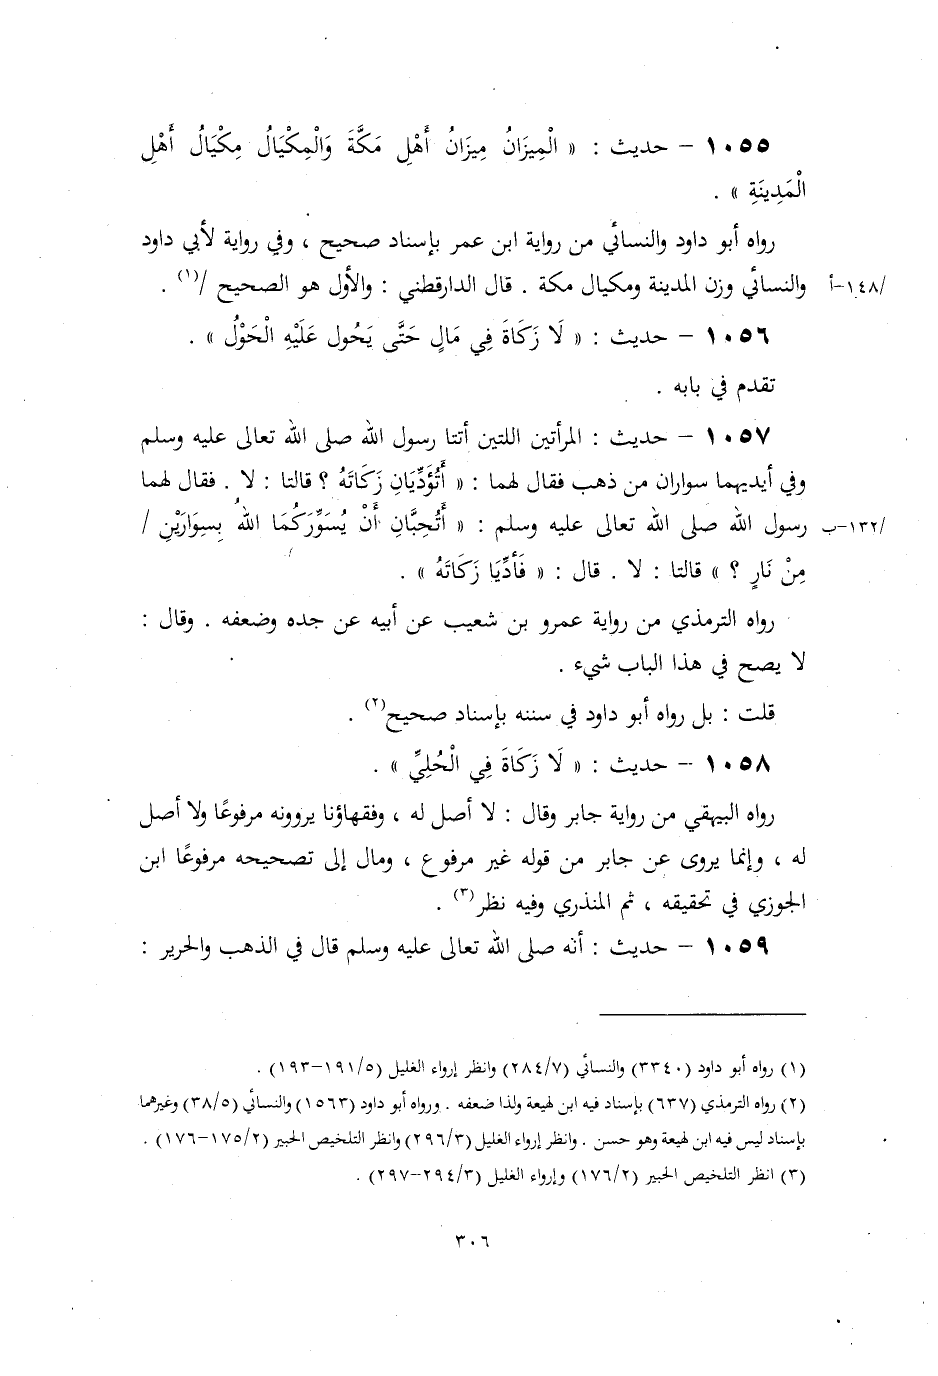 ١٠٥٥ – حديث : « الْمِيزَانُ مِيزَانُ أَهْلِ مَكَّةَ وَالْمِكْيَالُ مِكْيَالُ أَهْلِ
الْمَدِينَةِ » .
رواه أبو داود والنسائي من رواية ابن عمر بإسناد صحيح ، وفي رواية لأبي داود
/١٤٨-أ والنسائي وزن المدينة ومكيال مكة . قال الدارقطني : والأول هو الصحيح /(١) .
١٠٥٦ – حديث : « لَا زَكَاةَ فِي مَالٍ حَتَّى يَحُول عَلَيْهِ الْحَوْلُ » .
تقدم في بابه .
١٠٥٧ – حديث : المرأتين اللتين أتتا رسول الله صلى الله تعالى عليه وسلم
وفي أيديهما سواران من ذهب فقال لهما : « أَتُؤَدِّيَانِ زَكَاتَهُ ؟ قالتا : لا . فقال لهما
/١٣٢-ب رسول الله صلى الله تعالى عليه وسلم : « أَتُحِبَّانِ أَنْ يُسَوِّرَكُمَا اللهُ بِسِوَارَيْنِ /
مِنْ نَارٍ ؟ » قالتا : لا . قال : « فَأَدِّيَا زَكَاتَهُ » .
رواه الترمذي من رواية عمرو بن شعيب عن أبيه عن جده وضعفه . وقال :
لا يصح في هذا الباب شيء .
قلت : بل رواه أبو داود في سننه بإسناد صحيح(٢) .
١٠٥٨ – حديث : « لَا زَكَاةَ فِي الْحُلِيِّ » .
رواه البيهقي من رواية جابر وقال : لا أصل له ، وفقهاؤنا يروونه مرفوعًا ولا أصل
له ، وإنما يروى عن جابر من قوله غير مرفوع ، ومال إلى تصحيحه مرفوعًا ابن
الجوزي في تحقيقه ، ثم المنذري وفيه نظر(٣) .
١٠٥٩ – حديث : أنه صلى الله تعالى عليه وسلم قال في الذهب والحرير :
(١) رواه أبو داود (٣٣٤٠) والنسائي (٢٨٤/٧) وانظر إرواء الغليل (١٩١/٥–١٩٣) .
(٢) رواه الترمذي (٦٣٧) بإسناد فيه ابن لهيعة ولذا ضعفه . ورواه أبو داود (١٥٦٣) والنسائي (٣٨/٥) وغيرهما
بإسناد ليس فيه ابن لهيعة وهو حسن . وانظر إرواء الغليل (٢٩٦/٣) وانظر التلخيص الحبير (١٧٥/٢–١٧٦) .
(٣) انظر التلخيص الحبير (١٧٦/٢) وإرواء الغليل (٢٩٤/٣–٢٩٧) .
٣٠٦